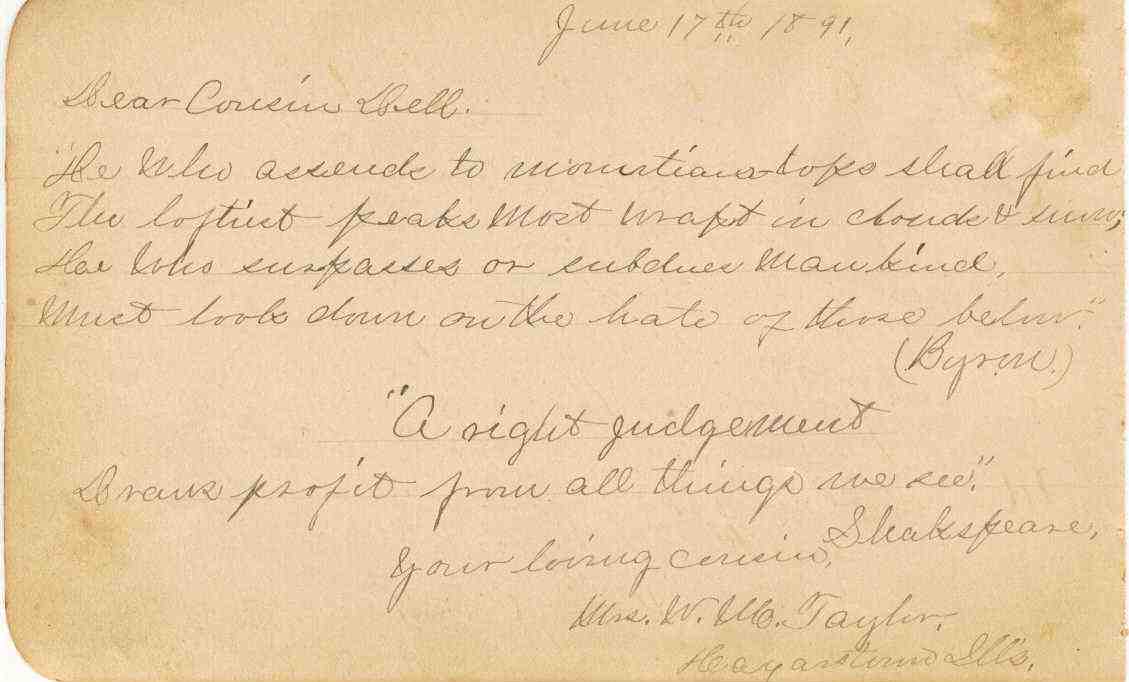 June 17th 1891.
Dear Cousin Dell.
"He Who assends to mountians-tops shall find
The loftiest peaks Most wrapt in clouds & snow;
He Who surpasses or subdues Mankind,
Must look down on the hate of those below."
(Byron.)
"A right judgement
Draws profit from all things we see."
Shakspeare,
Your loving cousin,
Mrs. W. M. Taylor.
Ills.